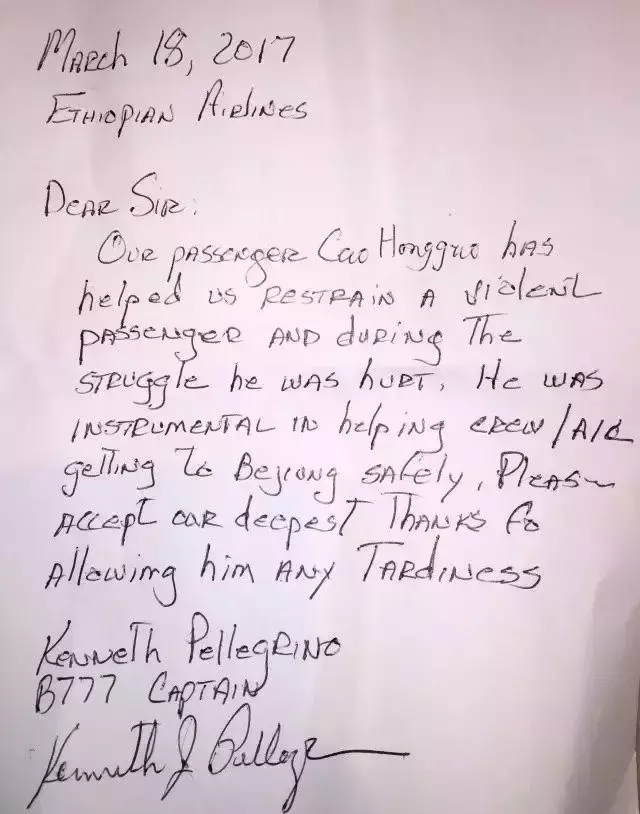 March 18, 2017
Ethiopian Airlines
Dear Sir:
Our passenger Cao Hongguo has
helped us restrain a violent
passenger and during the
struggle he was hurt. He was
instrumental in helping crew/A/C
getting to Bejiung safely, Please
accept our deepest thanks fo
allowing him any tardiness
Kenneth Pellegrino
B777 Captain
Kenneth J Pellegr